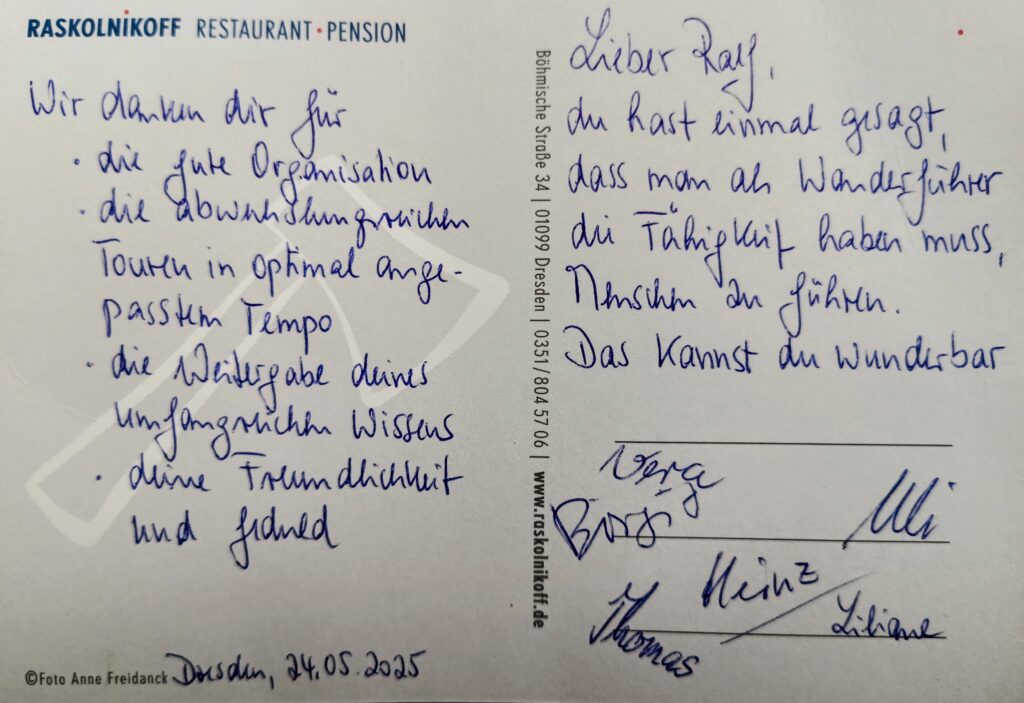 RASKOLNiKOFF RESTAURANT • PENSION
Wir danken dir für
• die gute Organisation
• die abwechslungsreichen
Touren in optimal ange-
passtem Tempo
• die Weitergabe deines
umfangreichen Wissens
• deine Freundlichkeit
und Geduld
©Foto Anne Freidanck
Dresden, 24.05.2025
Böhmische Straße 34 | 01099 Dresden | 0351/804 57 06 | www.raskolnikoff.de
Lieber Ralf,
du hast einmal gesagt,
dass man als Wanderführer
die Fähigkeit haben muss,
Menschen zu führen.
Das kannst du wunderbar
Vera
Birgi
Uli
Heinz
Thomas
Liliane